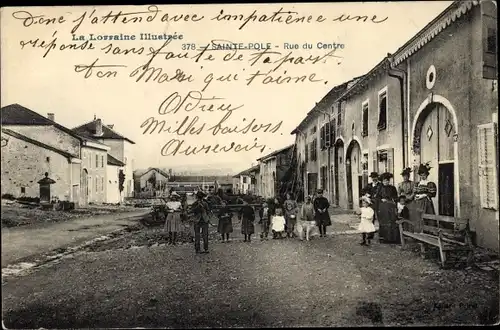 Donc j'attend avec impatience une
La Lorraine Illustrée
réponse sans faute de ta part
378 - SAINTE-POLE - Rue du Centre
Ton Mari qui t'aime.
Adieu
Milles baisers
Aurevoir